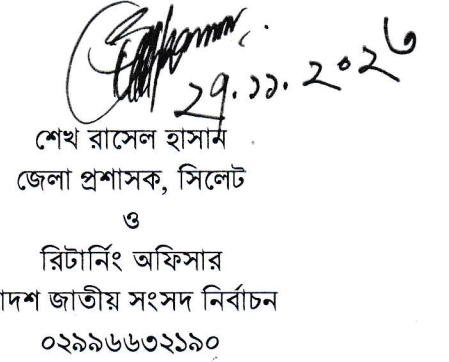 ২৭.১১.২০২৩
শেখ রাসেল হাসান
জেলা প্রশাসক, সিলেট
ও
রিটার্নিং অফিসার
াদশ জাতীয় সংসদ নির্বাচন
০২৯৯৬৬৩২১৯০